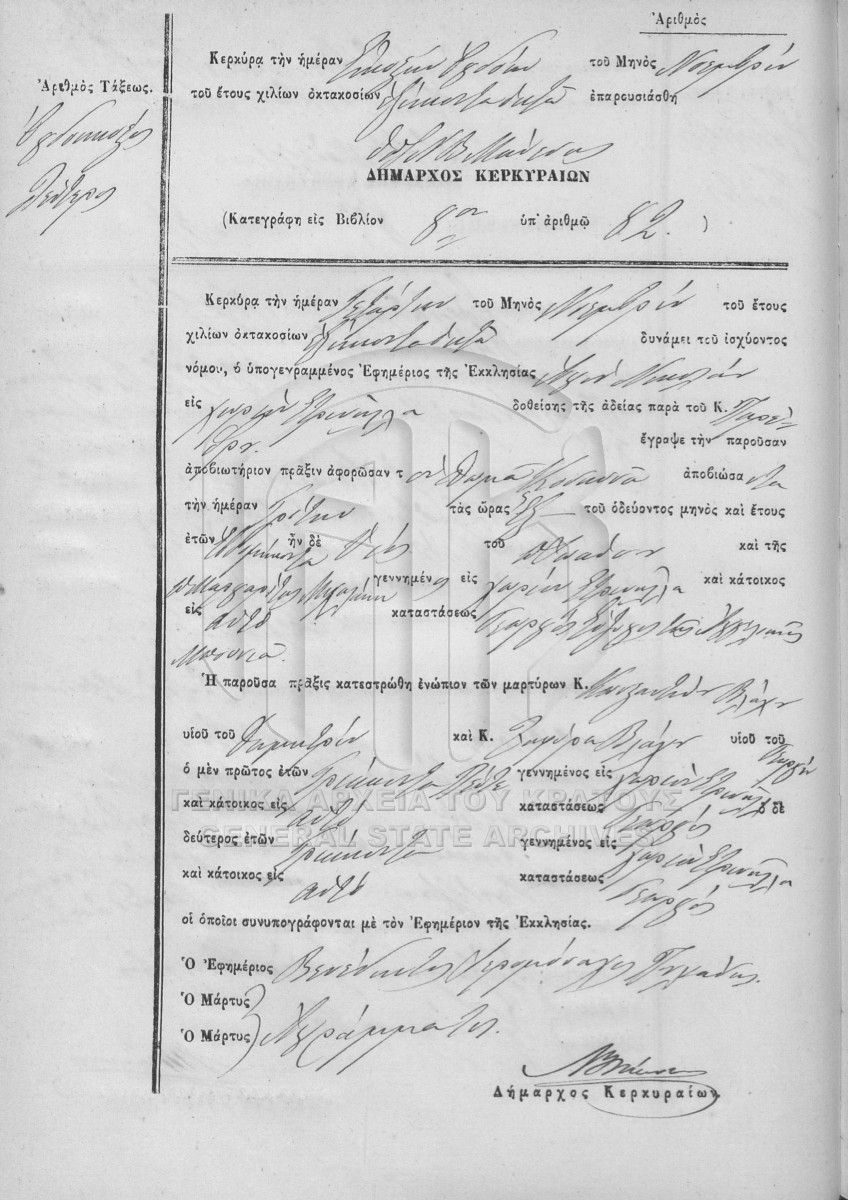 Ἀριθμὸς
Κερκύρᾳ τὴν ἡμέραν Εἰκοστὴν Ὀγδόην τοῦ Μηνὸς Νοεμβρίου
Ἀριθμὸς Τάξεως.
τοῦ ἔτους χιλίων ὀκτακοσίων ἑξήκοντα ὀκτὼ ἐπαρουσιάσθη
Ὀγδοηκοστὸς
Δεύτερος
ΔΗΜΑΡΧΟΣ ΚΕΡΚΥΡΑΙΩΝ
(Κατεγράφη εἰς Βιβλίον 8ον ὑπ' ἀριθμῷ 82.)
Κερκύρᾳ τὴν ἡμέραν Τετάρτην τοῦ Μηνὸς Νοεμβρίου τοῦ ἔτους
χιλίων ὀκτακοσίων ἑξήκοντα ὀκτὼ δυνάμει τοῦ ἰσχύοντος
νόμου, ὁ ὑπογεγραμμένος Ἐφημέριος τῆς Ἐκκλησίας Ἁγίου Νικολάου
εἰς χωρίον Στρινύλλα δοθείσης τῆς ἀδείας παρὰ τοῦ Κ. Παρέ-
δρου ἔγραψε τὴν παροῦσαν
ἀποβιωτήριον πρᾶξιν ἀφορῶσαν τὸν Θωμᾶ ἀποβιώσαντα
τὴν ἡμέραν Τρίτην τὰς ὥρας ἓξ τοῦ ὁδεύοντος μηνὸς καὶ ἔτους
ἐτῶν ἑβδομήκοντα ἦν δὲ υἱὸς τοῦ καὶ τῆς
γεννημένος εἰς χωρίον Στρινύλλα καὶ κάτοικος
εἰς αὐτὸ καταστάσεως Γεωργὸς σύζυγος τῆς Ἀγγελικῆς
Ἡ παροῦσα πρᾶξις κατεστρώθη ἐνώπιον τῶν μαρτύρων Κ. Κωνσταντίνου Βλάχου
υἱοῦ τοῦ Δημητρίου καὶ Κ. Σπυρ. Βλάχου υἱοῦ τοῦ
ὁ μὲν πρῶτος ἐτῶν τριάκοντα πέντε γεννημένος εἰς χωρίον Στρινύλλα
καὶ κάτοικος εἰς αὐτὸ καταστάσεως Γεωργὸς ὁ δὲ
δεύτερος ἐτῶν τριάκοντα γεννημένος εἰς χωρίον Στρινύλλα
καὶ κάτοικος εἰς αὐτὸ καταστάσεως Γεωργὸς
οἱ ὁποῖοι συνυπογράφονται μὲ τὸν Ἐφημέριον τῆς Ἐκκλησίας.
Ὁ Ἐφημέριος Βενέδικτος Ἱερομόναχος
Ὁ Μάρτυς
Ὁ Μάρτυς Ἀγράμματοι.
Δήμαρχος Κερκυραίων.
ΓΕΝΙΚΑ ΑΡΧΕΙΑ ΤΟΥ ΚΡΑΤΟΥΣ
GENERAL STATE ARCHIVES